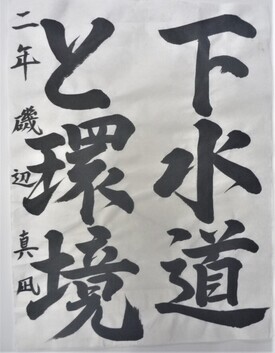 下水道
と環境
二年 磯辺 真凪